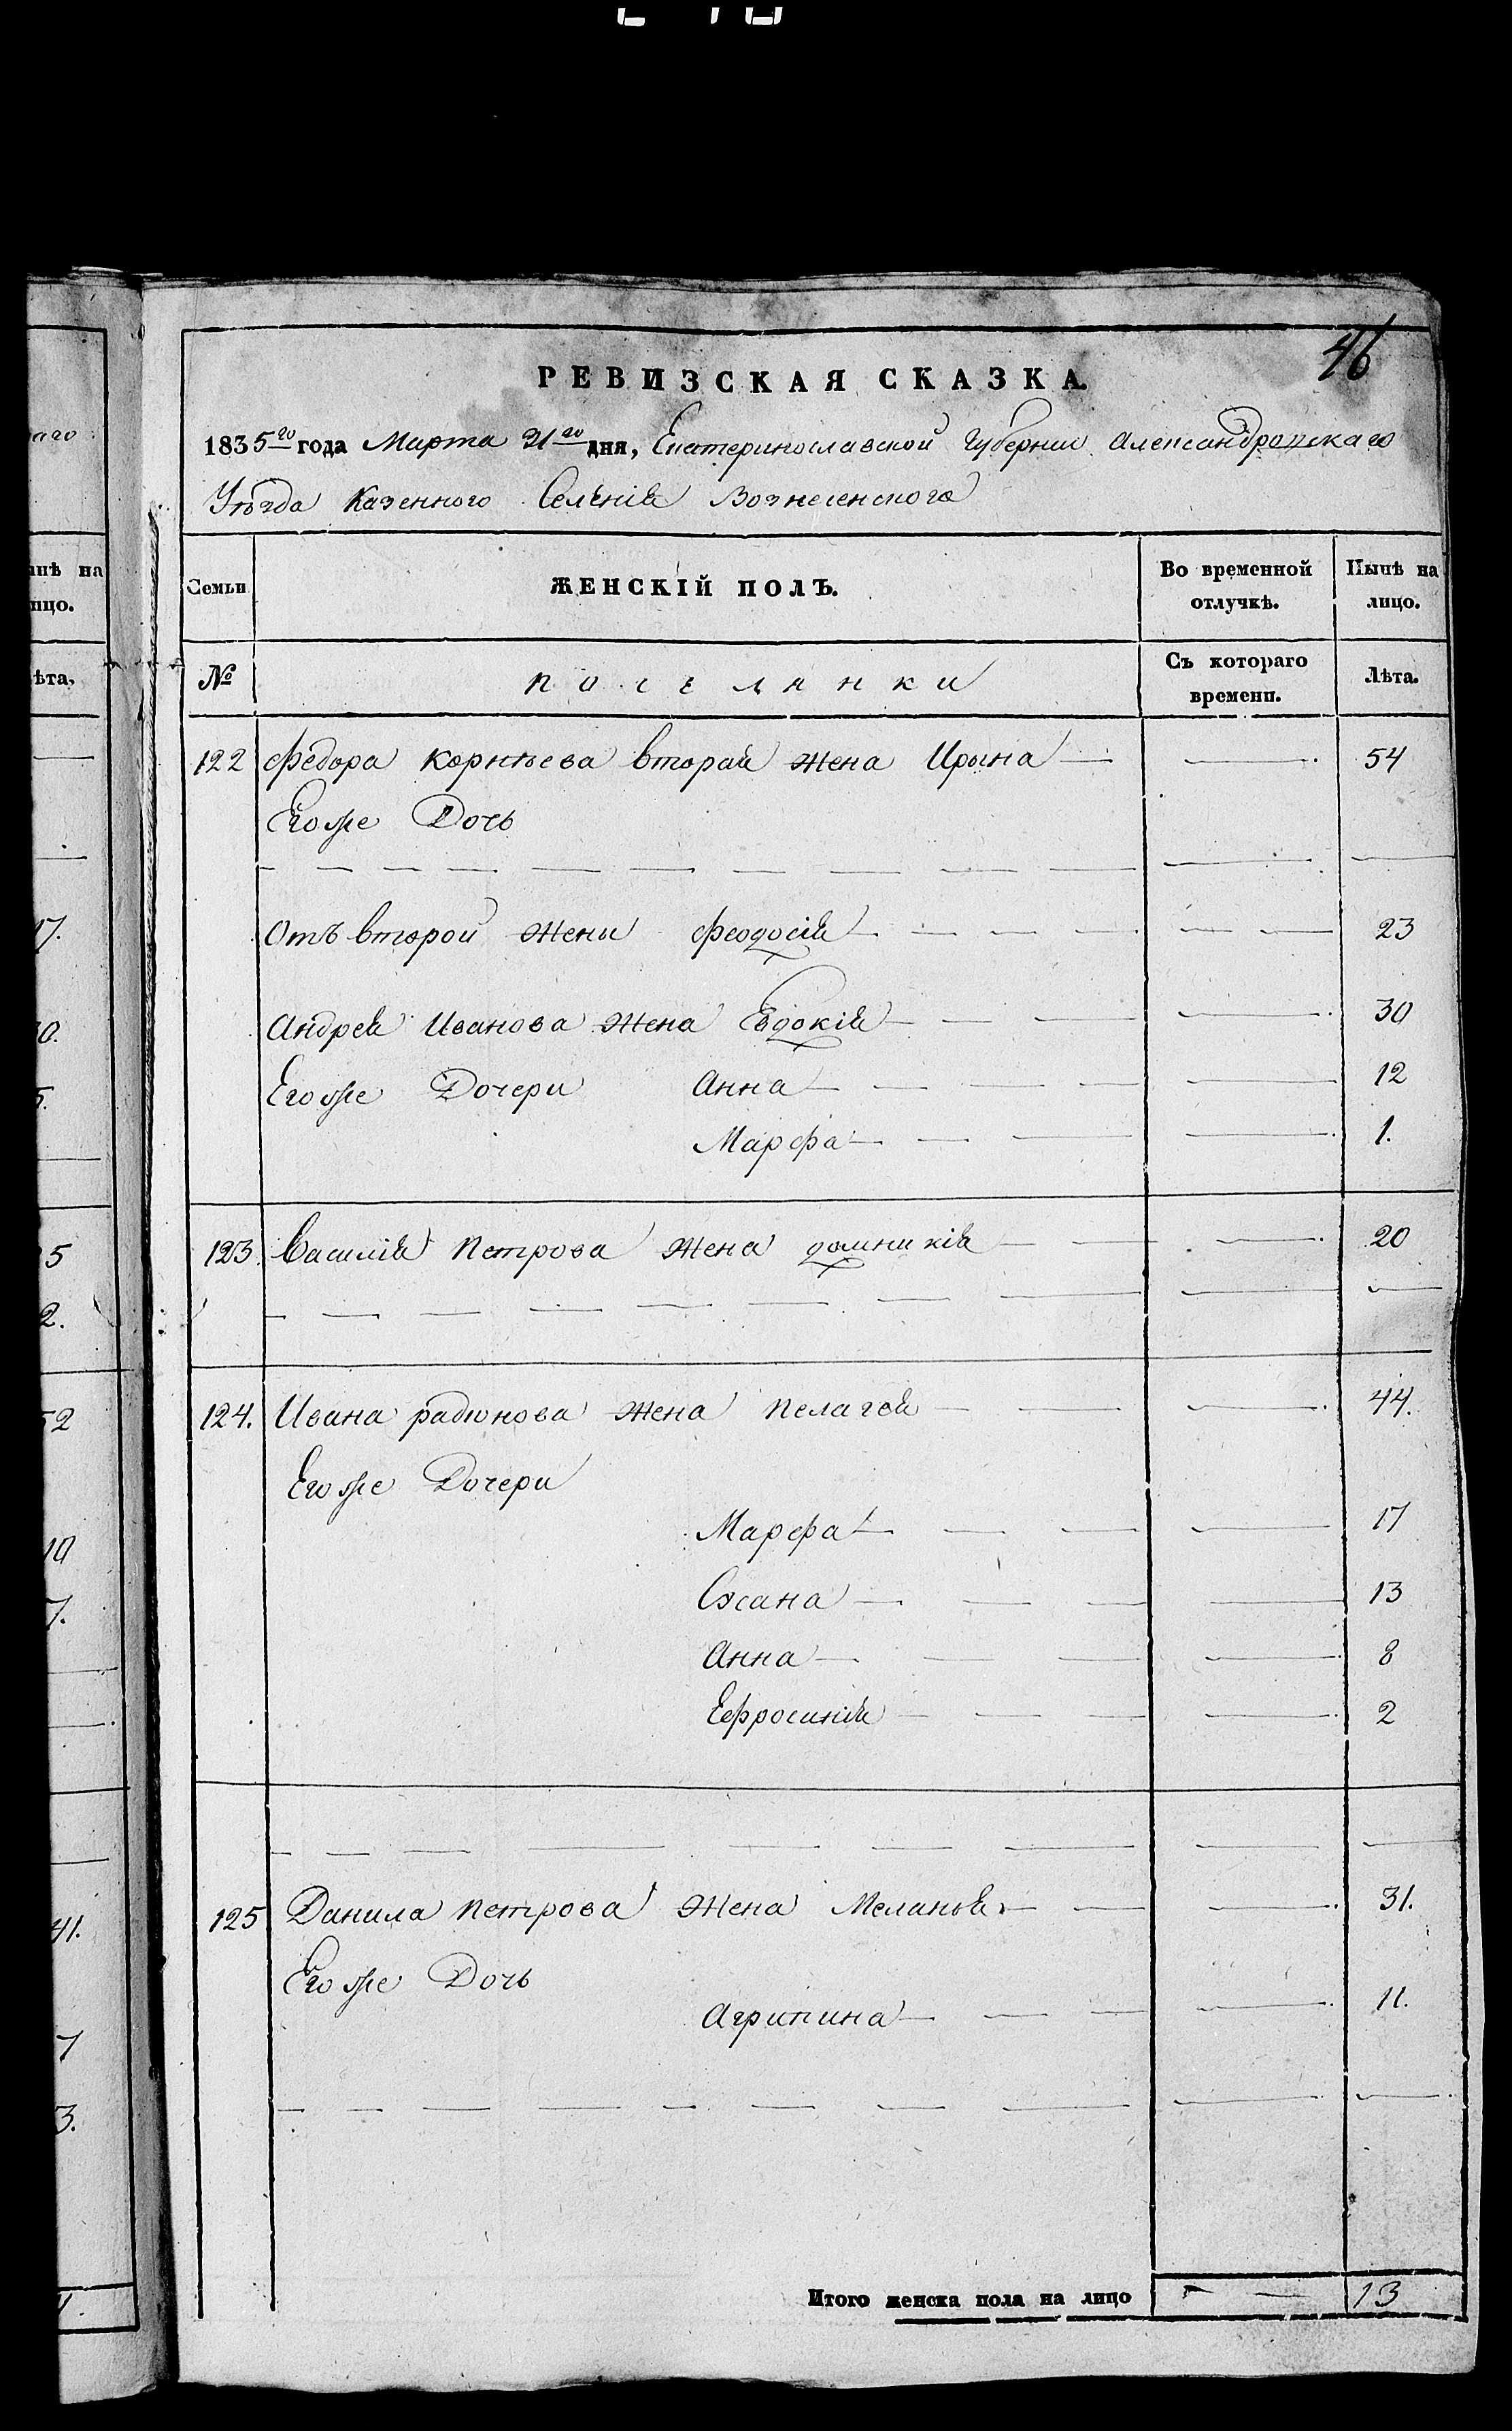 46
РЕВИЗСКАЯ СКАЗКА.
1835го года Марта 31го дня, Екатеринославской Губернии Александровскаго
Уѣзда Казенного Селенія Вознесенского
Семьи
ЖЕНСКІЙ ПОЛЪ.
Во временной отлучкѣ.
Нынѣ на лицо.
№
поселянки
Съ котораго времени.
Лѣта.
122 Федора Корнѣева вторая жена Ирина 54
Егоже Дочь
Отъ второй жены Феодосія 23
Андрея Иванова жена Евдокія 30
Егоже Дочери Анна 12
Марфа 1.
123. Василія Петрова жена домникія 20
124. Ивана радионова жена Пелагея 44.
Егоже Дочери
Марфа 17
Оксана 13
Анна 8
Ефросинія 2
125 Данила Петрова жена Меланья 31.
Егоже Дочь
Агрипина 11.
Итого женска пола на лицо 13